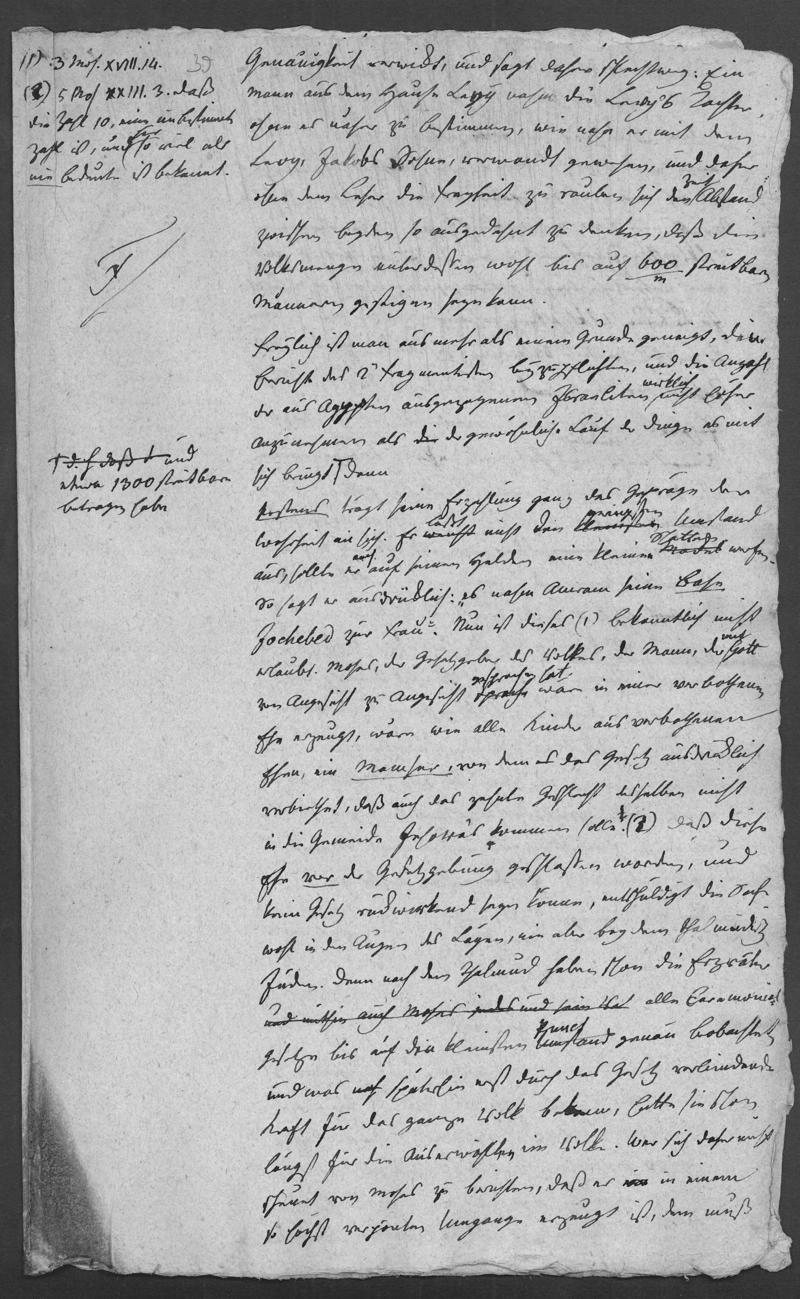 (1) 3 Mos. XVIII. 14.
39
(2) 5 Mos XXIII. 3. daß
die Zahl 10, eine unbestimmte
Zahl ist, und so viel als
nie bedeute ist bekannt.
Genauigkeit verwischt, und sagt daher schlechtweg: Ein
Mann aus dem Hause Levy nahm die Levy's Tochter,
ohne es näher zu bestimmen, wie nahe er mit dem
Levy, Jakobs Sohne, verwandt gewesen, und daher
ohne dem Leser die Freyheit zu rauben sich den Zeit Abstand
zwischen beyden so ausgedehnt zu denken, daß die
Volksmenge unterdessen wohl bis auf 600 streitbaren
m
Männern gestiegen seyn kann.
Freylich ist man aus mehr als einem Grunde geneigt, dem
Berichte des 2 Fragmentisten beyzupflichten, und die Anzahl
der aus Agypten ausgezogenen Israeliten wirklich nicht höher
anzunehmen als die der gewöhnliche Lauf der Dinge es mit
sich bringt denn
und
etwa 1300 streitbare
betragen habe
Erstens trägt seine Erzählung ganz das Gepräge der
Wahrheit an sich. Er läßt nicht den geringsten Umstand
aus, sollte er auch auf seinen Helden einen kleinen Schatten werfen.
So sagt er ausdrücklich: „es nahm Amram seine Base
Jochebed zur Frau". Nun ist dieses (1) bekanntlich nicht
erlaubt. Moses, der Gesetzgeber des Volkes, der Mann, der mit Gott
von Angesicht zu Angesicht gesprochen hat wäre in einer verbothenen
Ehe erzeugt, wäre wie alle Kinder aus verbothenen
Ehen, ein Mamser, von dem es das Gesetz ausdrücklich
verbiethet, daß auch das zehnte Geschlecht desselben nicht
in die Gemeinde Jehova's kommen solle. (2) daß diese
Ehe vor der Gesetzgebung geschlossen worden, und
kein Gesetz rückwirkend seyn könne, entschuldigt die Sache
wohl in den Augen des Layen, nie aber bey dem thalmudistischen
Juden. Denn nach dem Thalmud haben schon die Erzväter
und mithin auch Moses alle Ceremonial
gesetze bis auf den kleinsten Punct genau beobachtet
und was späterhin erst durch das Gesetz verbindende
Kraft für das ganze Volk bekam, hatte sie schon
längst für die Auserwählten im Volke. Wer sich daher nicht
scheuet von Moses zu berichten, daß er in einem
so höchst verpönten Umgange erzeugt ist, dem muß